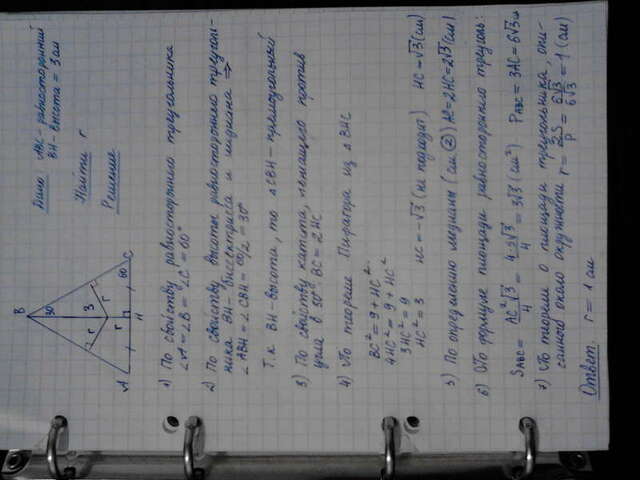 Дано: △ABC - равносторонний
BH - высота = 3 см
Найти r
Решение
B
30
3
r
r
r
60
A
H
C
1) По свойству равностороннего треугольника
∠A = ∠B = ∠C = 60°
2) По свойству высоты равностороннего треуголь-
ника BH - биссектриса и медиана ⇒
∠ABH = ∠CBH = 60/2 = 30°
Т.к. BH - высота, то △CBH - прямоугольный
3) По свойству катета, лежащего против
угла в 30° BC = 2HC
4) По теореме Пифагора из △BHC
BC² = 9 + HC²
4HC² = 9 + HC²
3HC² = 9
HC² = 3 HC = -√3 (не подходит) HC = √3 (см)
5) По определению медианы (см ②) AC = 2HC = 2√3 (см)
6) По формуле площади равностороннего треуголь:
S ABC = AC²√3/4 = 4·3√3/4 = 3√3 (см²) P ABC = 3AC = 6√3 см
7) По теореме о площади треугольника, опи-
санного около окружности r = 2S/P = 6√3/6√3 = 1 (см)
Ответ: r = 1 см